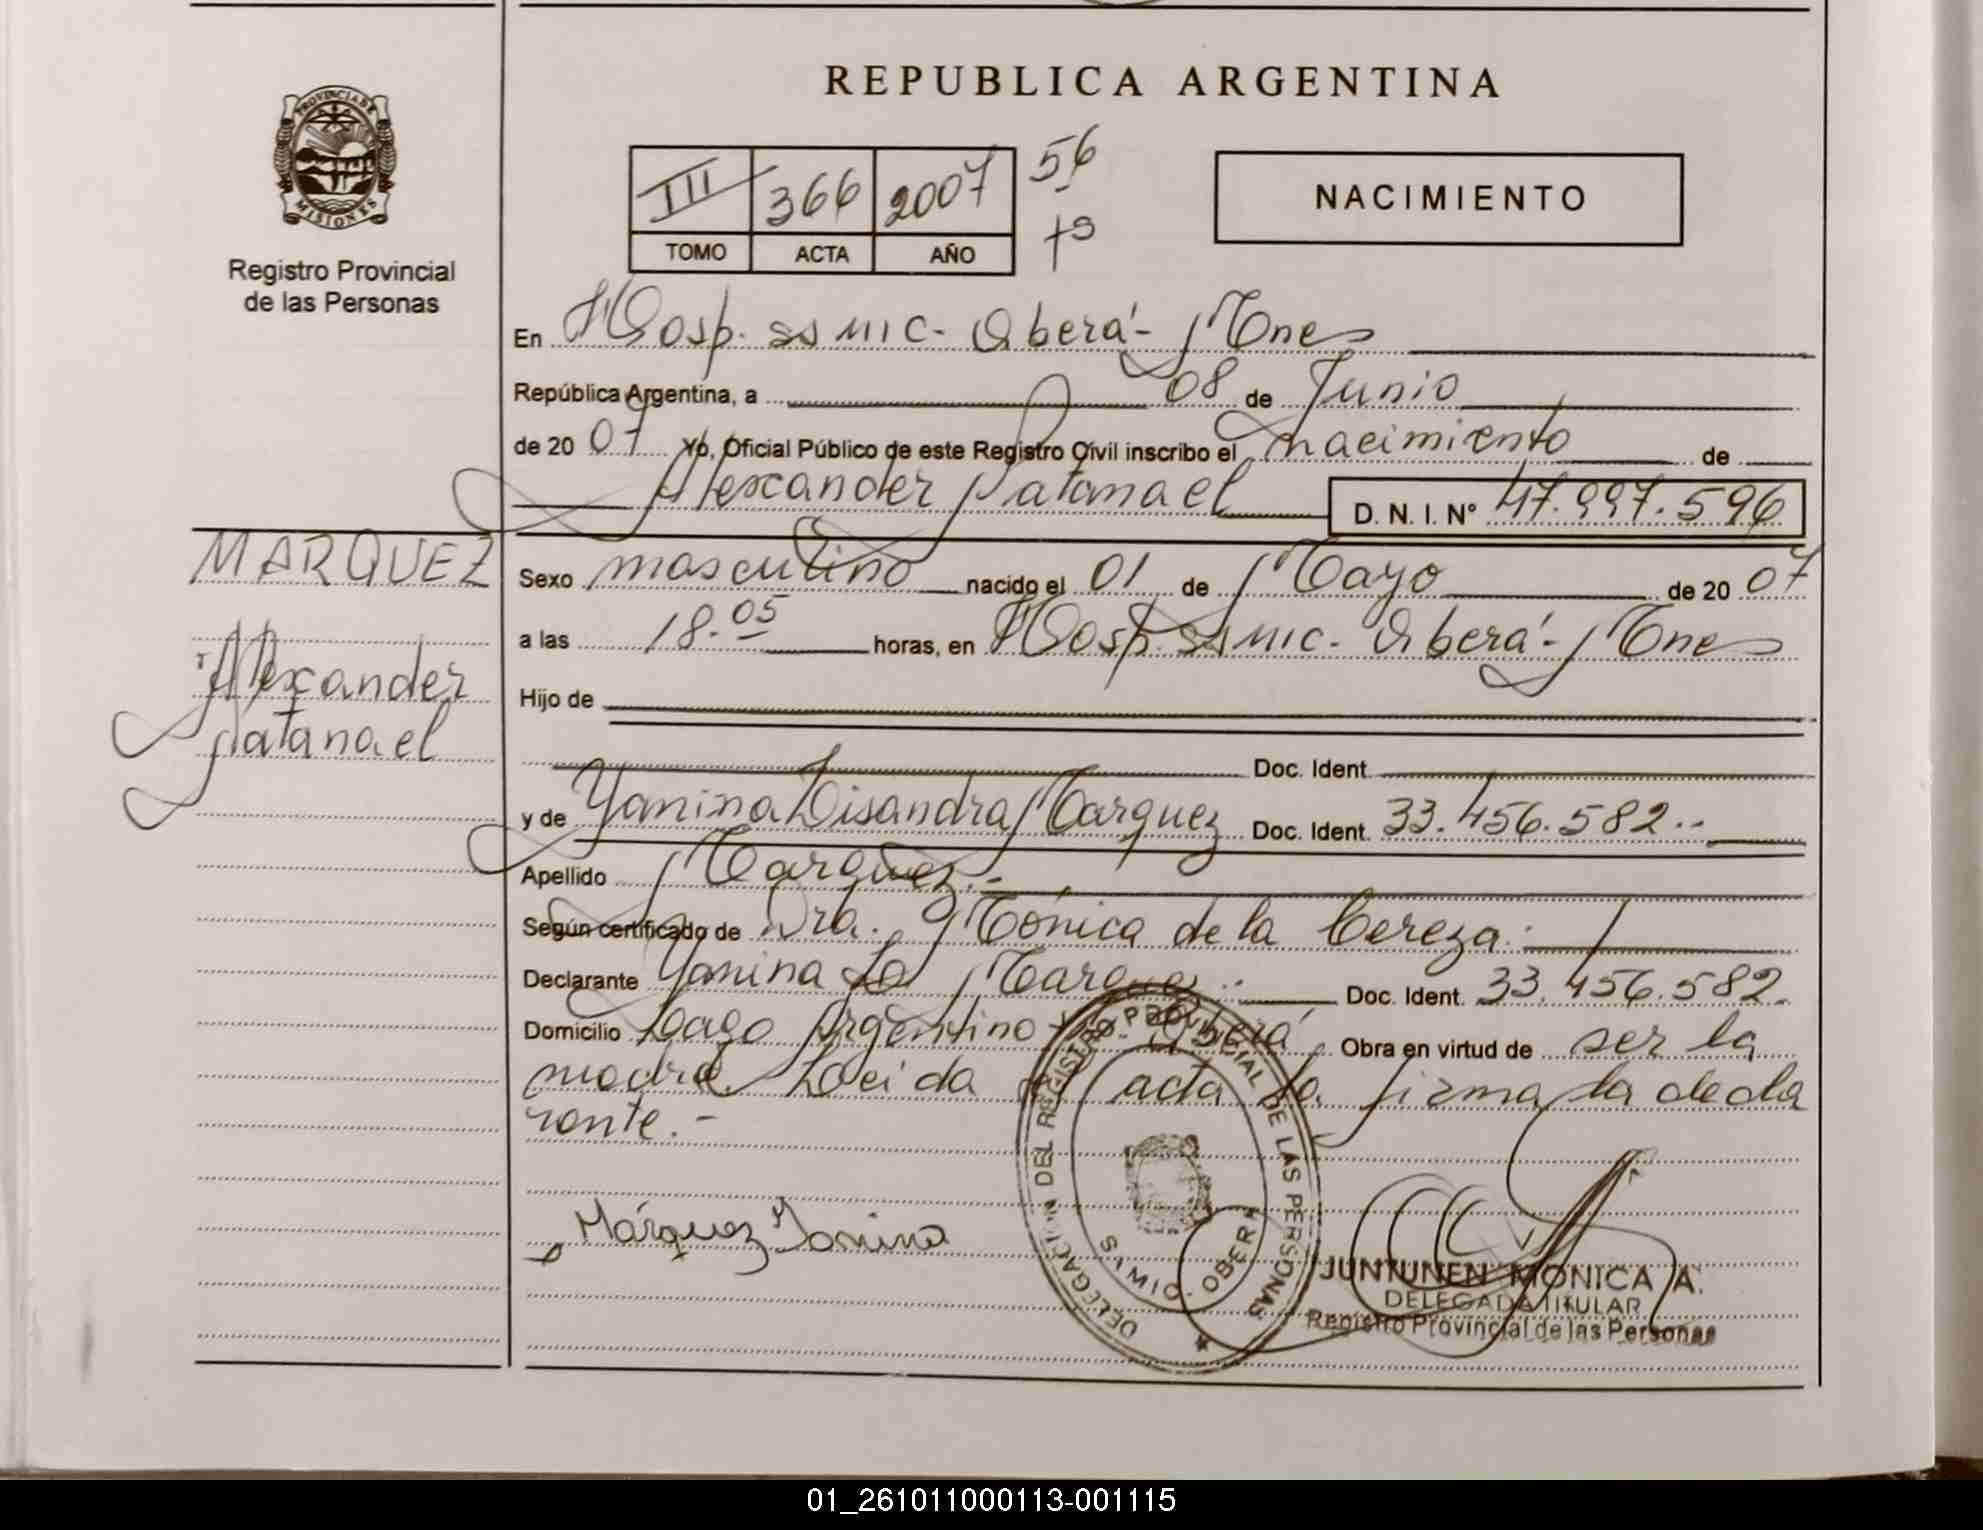 REPUBLICA ARGENTINA
PROVINCIA DE MISIONES
Registro Provincial
de las Personas
III 366 2007 56
TOMO ACTA AÑO
NACIMIENTO
En Hosp. SS MIC - Oberá - Mnes
República Argentina, a 08 de Junio
de 2007 Yo, Oficial Público de este Registro Civil inscribo el nacimiento de
Alexander Natanael D. N. I. Nº 47.997.596
MARQUEZ
Alexander
Natanael
Sexo masculino nacido el 01 de Mayo de 2007
a las 18.05 horas, en Hosp. SS MIC - Oberá - Mnes
Hijo de
Doc. Ident.
y de Yanina Lisandra Marquez Doc. Ident. 33.456.582.-
Apellido Marquez.-
Según certificado de Dra. Mónica de la Cereza.-
Declarante Yanina L. Marquez.- Doc. Ident. 33.456.582.
Domicilio Lago Argentino Oberá Obra en virtud de ser la
madre Leida el acta la firma la decla
rante.-
Márquez Yanina
DELEGACION DEL REGISTRO PROVINCIAL DE LAS PERSONAS
OBERA
JUNTUNEN MONICA A.
DELEGADA TITULAR
Registro Provincial de las Personas
01_261011000113-001115